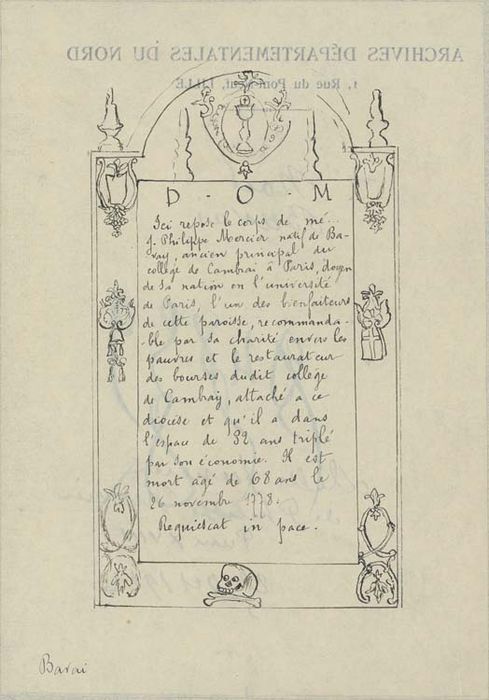 ARCHIVES DÉPARTEMENTALES DU NORD
1, Rue du Pont-Neuf, LILLE
D. O. M
Ici repose le corps de mé...
J. Philippe Mercier natif de Ba-
vay, ancien principal du
collège de Cambrai à Paris, doyen
de sa nation en l'université
de Paris, l'un des bienfaiteurs
de cette paroisse, recommanda-
-ble par sa charité envers les
pauvres et le restaurateur
des bourses dudit collège
de Cambray, attaché a ce
diocèse et qu'il a dans
l'espace de 32 ans triplé
par son économie. Il est
mort âgé de 68 ans le
26 novembre 1778.
Requiescat in pace.
Bavai